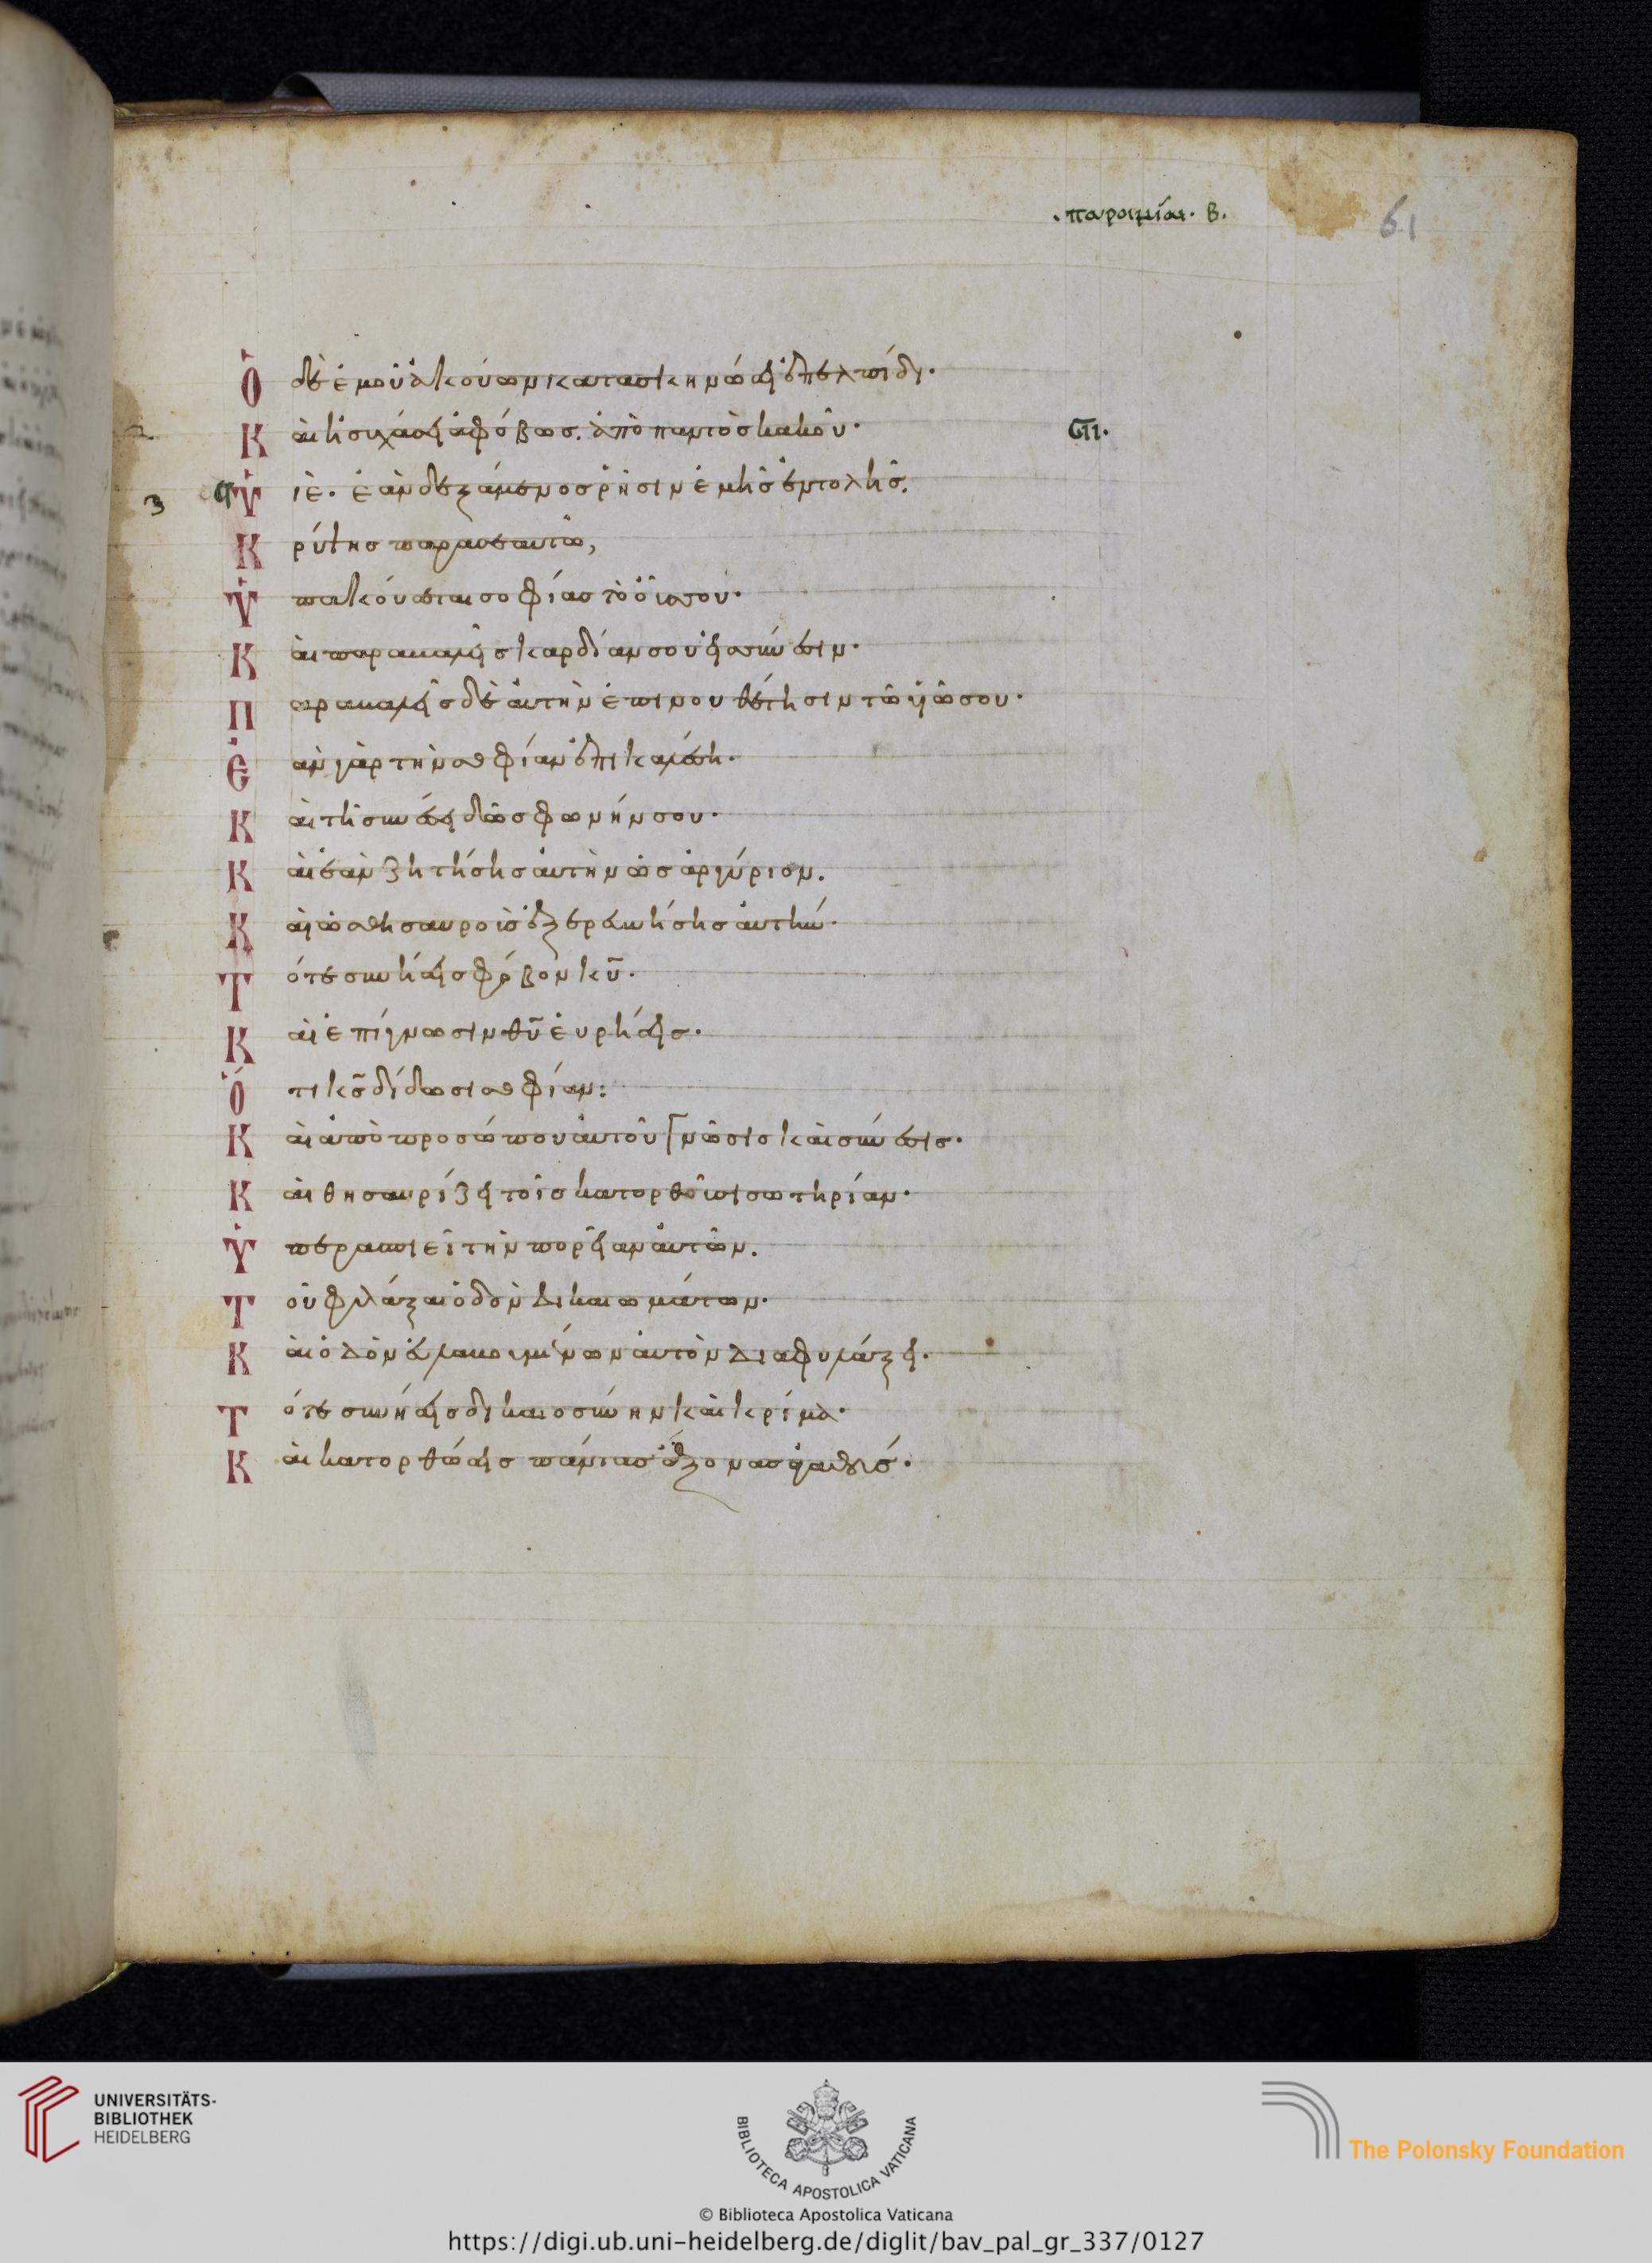 παροιμίαι. β.
61
Ὁ δὲ ἐμοῦ ἀκούων κατασκηνώσει ἐπ ἐλπίδι·
Καὶ ἡσυχάσει ἀφόβως. ἀπὸ παντὸς κακοῦ·
3 Ὑιὲ. ἐὰν δεξάμενος ῥῆσιν ἐμῆς ἐντολῆς.
Κρύψης παρὰ σεαυτῶ,
Ὑπακούσεται σοφίας τὸ οὖς σου·
Καὶ παραβαλεῖς καρδίαν σου εἰς σύνεσιν·
Παραβαλεῖς δὲ ἀυτὴν ἐπι νουθέτησιν τῶ υἱῶ σου·
Ἐὰν γὰρ τὴν σοφίαν ἐπικαλέση·
Καὶ τῆ συνέσει δῶς φωνήν σου·
Καὶ ἐὰν ζητήσης ἀυτὴν ὡς ἀργύριον.
Καὶ ὡς θησαυροὺς ἐξερευνήσης ἀυτήν·
Τότε συνήσεις φόβον κυ·
Καὶ ἐπίγνωσιν θυ ἑυρήσεις·
Ὅτι κς δίδωσι σοφίαν:
Καὶ ἀπὸ προσώπου ἀυτοῦ γνῶσις καὶ σύνεσις·
Καὶ θησαυρίζει τοῖς κατορθοῦσι σωτηρίαν·
Ὑπερασπιεῖ τὴν πορείαν ἀυτῶν.
Τοῦ φυλάξαι ὁδὸν δικαιωμάτων·
Καὶ ὁδὸν ἐυλαβουμένων ἀυτὸν διαφυλάξει·
Τότε συνήσεις δικαιοσύνην καὶ κρίμα·
Καὶ κατορθώσεις πάντας ἄξονας ἀγαθούς·
UNIVERSITÄTS-
BIBLIOTHEK
HEIDELBERG
BIBLIOTECA APOSTOLICA VATICANA
The Polonsky Foundation
© Biblioteca Apostolica Vaticana
https://digi.ub.uni-heidelberg.de/diglit/bav_pal_gr_337/0127